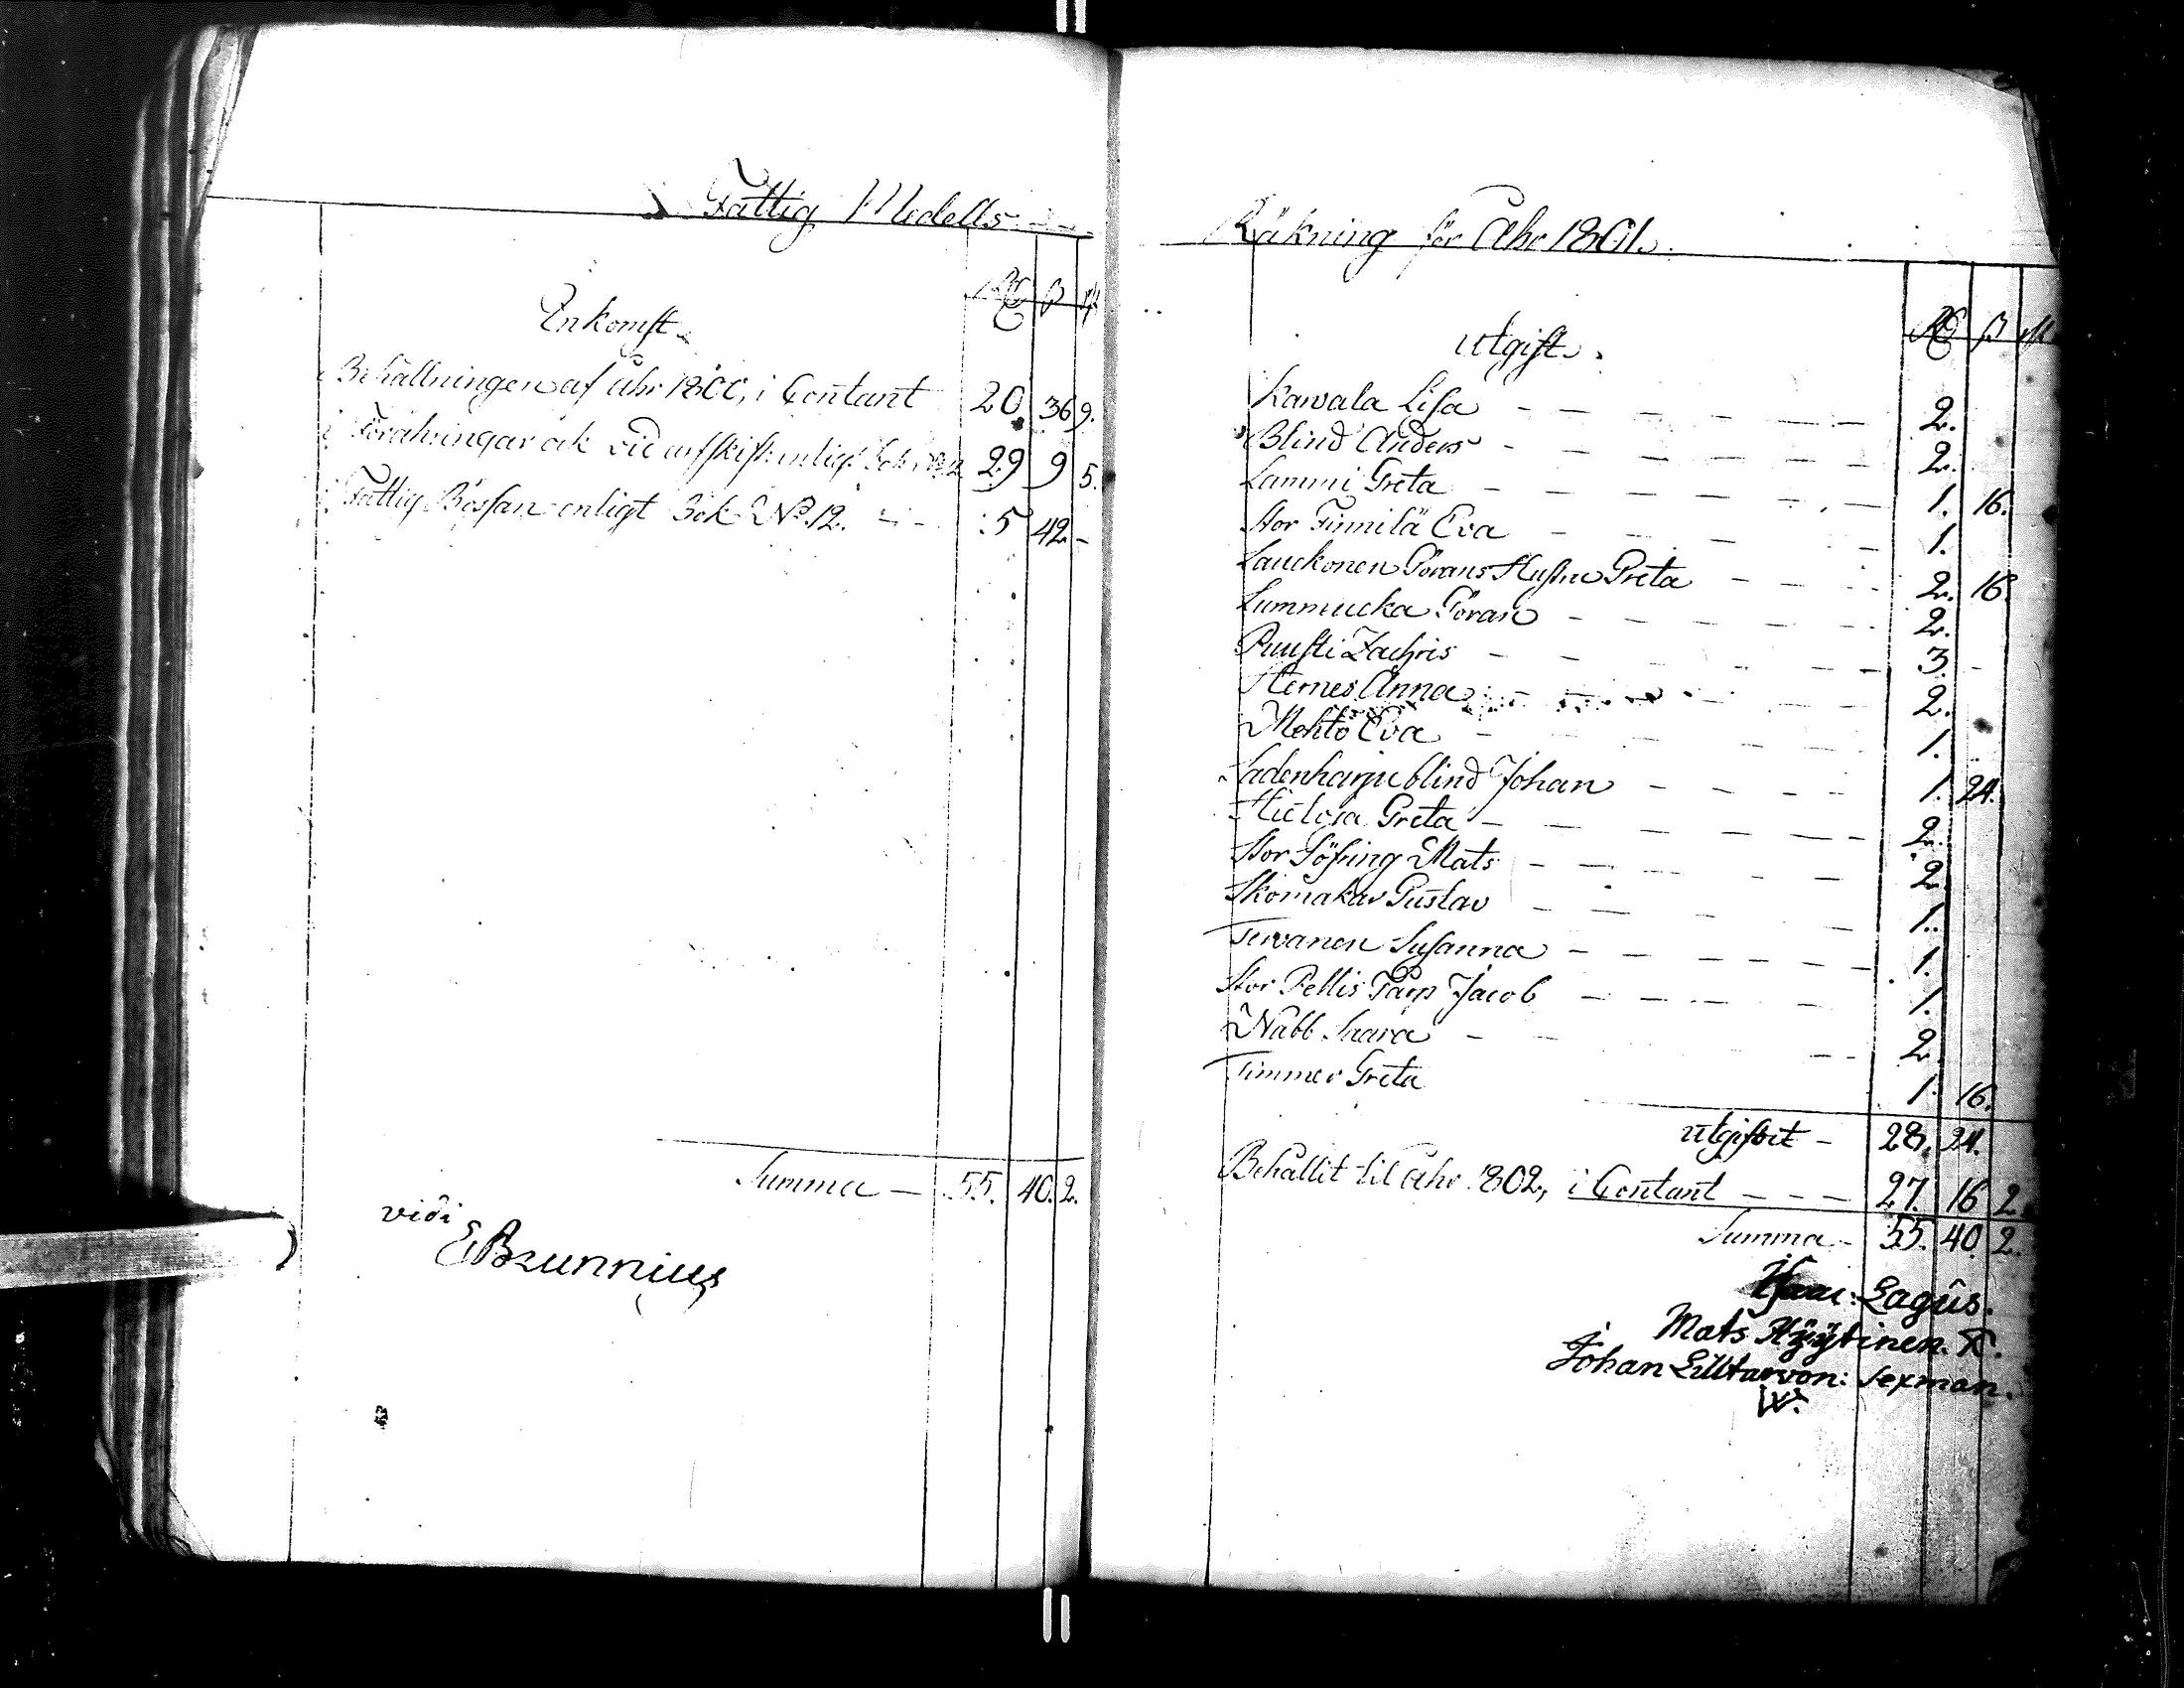 Fattig Medells
Enkomst
Rd ß rst
Behållningen af åhr 1800, i Contant 20. 36 9.
Föräringar och vid arfskift enligt Bok No 12 29 9 5.
Fattig Bössan enligt Bok No. 12. 5 42. -
Summa — 55. 40. 2.
vidi
E Brunnius
Räkning för Åhr 1801.
utgift.
Rd ß rst
Kawala Lisa 2.
Blind Anders 2.
Lammi Greta 1. 16.
Stor Finnilä Eva 1.
Lauckonen Görans Hustru Greta 2. 16.
Lummucka Göran 2.
Puusti Zachris 3.
Hernes Anna 2.
Mehtö Eva 1.
Ladenharju blind Johan 1. 24.
Hietoja Greta 2.
Stor Söfring Mats 2.
Skomakar Gustav 1.
Tervanen Susanna 1.
Stor Pellis Jacob 1.
Nabb Saara 2
Timmer Greta 1. 16.
utgifvit — 28. 24.
Behållit til åhr 1802, i Contant — — — 27. 16 2
Summa — 55. 40. 2.
Isaac: Lagus.
Mats Höÿtinen. K.
Johan Lilltarvon: sexman.